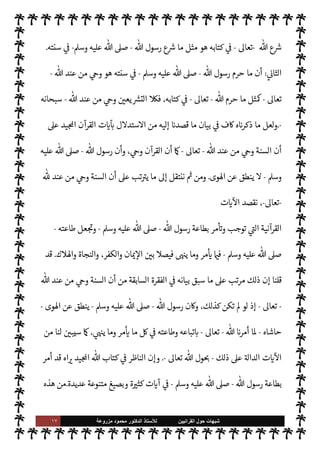 شرع الله -تعالى- في كتابه هو مثل ما شرع رسول الله - صلى الله عليه وسلم- في سنته.
الثاني: أن ما حرم رسول الله - صلى الله عليه وسلم - في سنته هو وحي من عند الله -
تعالى - كمثل ما حرم الله - تعالى - في كتابه، فكلا التشريعين وحي من عند الله - سبحانه
-.ولعل ما ذكرناه كاف في بيان ما قصدنا إليه من الاستدلال بآيات القرآن المجيد على
أن السنة وحي من عند الله - تعالى - كما أن القرآن وحي، وأن رسول الله - صلى الله عليه
وسلم - لا ينطق عن الهوى. ومن ثم ننتقل إلى ما يترتب على أن السنة وحي من عند لله
-تعالى-، نقصد الآيات
القرآنية التي توجب وتأمر بطاعة رسول الله - صلى الله عليه وسلم - وتجعل طاعته -
صلى الله عليه وسلم - فيما يأمر وما ينهى فيصلا بين الإيمان والكفر، والنجاة والهلاك. قد
قلنا إن ذلك مرتب على ما سبق بيانه في الفقرة السابقة من أن السنة وحي من عند الله
- تعالى - إذ لو لم تكن كذلك، وكان رسول الله - صلى الله عليه وسلم - ينطق عن الهوى -
حاشاه - لما أمرنا الله - تعالى - باتباعه وطاعته في كل ما يأمر وما ينهى، كما سيبين لنا من
الآيات الدالة على ذلك - بحول الله تعالى -. وإن الناظر في كتاب الله المجيد يراه قد أمر
بطاعة رسول الله - صلى الله عليه وسلم - في آيات كثيرة وبصيغ متنوعة عديدة.من هذه
١٧ شبهات حول القرآنيين للأستاذ الدكتور محمود مزروعة